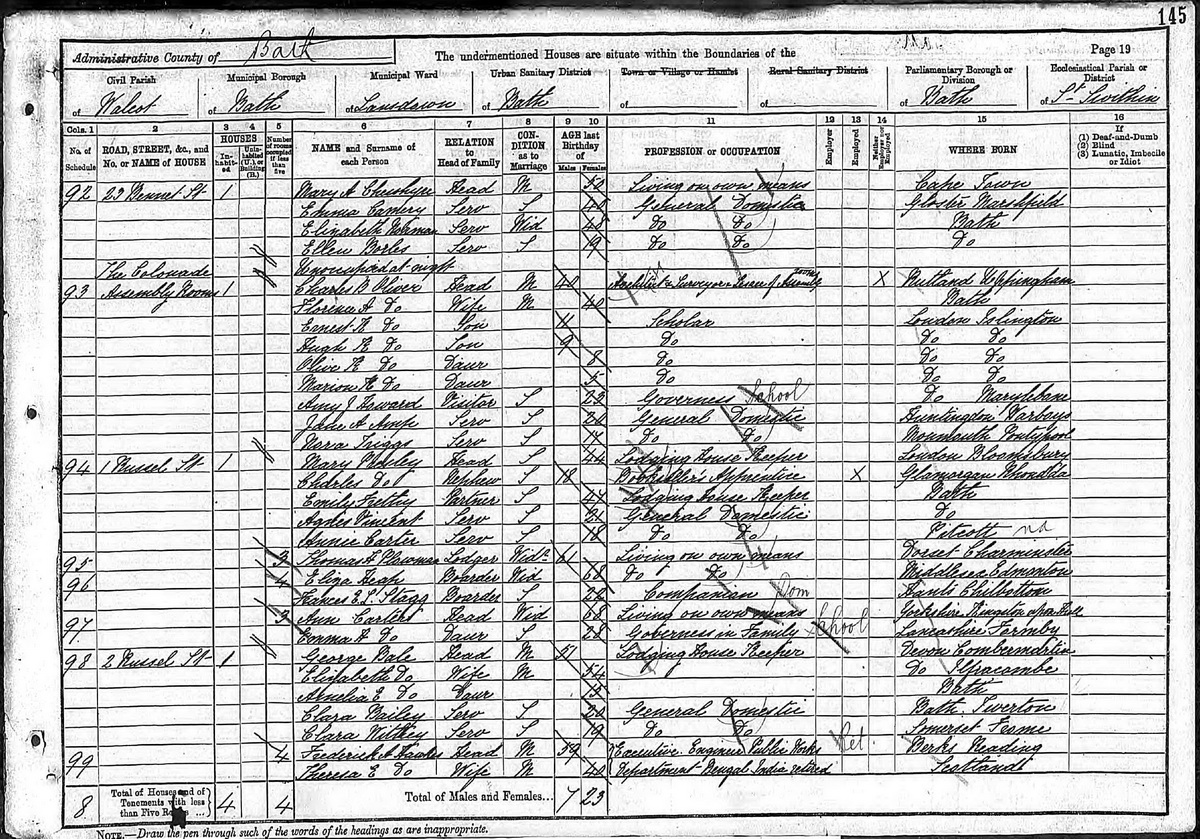 145
Administrative County of Bath The undermentioned Houses are situate within the Boundaries of the Page 19
Civil Parish Municipal Borough Municipal Ward Urban Sanitary District Town or Village or Hamlet Rural Sanitary District Parliamentary Borough or Division Ecclesiastical Parish or District
of Walcot of Bath of Lansdown of Bath of of of Bath of St. Swithin
Cols. 1 2 3 4 5 6 7 8 9 10 11 12 13 14 15 16
No. of Schedule ROAD, STREET, &c., and No. or NAME of HOUSE HOUSES In-habit-ed Unin-habited (U.) or Building (B.) Number of rooms occupied if less than five NAME and Surname of each Person RELATION to Head of Family CON-DITION as to Marriage AGE last Birthday of Males Females PROFESSION or OCCUPATION Employer Employed Neither Employer nor Employed WHERE BORN If (1) Deaf-and-Dumb (2) Blind (3) Lunatic, Imbecile or Idiot
92 23 Bennet St 1 Mary A Head M 50 Living on own means Cape Town
Emma Serv S 40 General Domestic Gloster Marshfield
Elizabeth Serv Wid 48 Do Do Bath
Ellen Serv S 19 Do Do Do
The Colonade Unoccupied at night
93 Assembly Rooms 1 Charles B Oliver Head M 40 Architect & Surveyor & Lessee of Assembly Rooms X Rutland Uppingham
Florence A Do Wife M 40 Bath
Ernest K Do Son 11 Scholar London Islington
Hugh K Do Son 9 Do Do Do
Olive K Do Daur 8 Do Do Do
Marion K Do Daur 5 Do Do Do
Amy J Howard Visitor S 22 Governess School Do Marylebone
Jane A Serv S 20 General Domestic Huntingdon Warboys
Triggs Serv S 17 Do Do Monmouth Pontypool
94 1 Russel St 1 Mary Head S 44 Lodging House Keeper London Bloomsbury
Charles Do Nephew S 18 Booksellers Apprentice X Glamorgan Rhondda
Emily Partner S 47 Lodging House Keeper Bath
Agnes Vincent Serv S 21 General Domestic Do
Annie Carter Serv S 18 Do Do Pitcott nd
95 3 Thomas F Plowman Lodger Widr 61 Living on own means Dorset Charminster
96 4 Eliza Heap Boarder Wid 68 Do Do Middlesex Edmonton
Frances E. L. Stagg Boarder S 22 Companion Dom Hants Chilbolton
97 3 Ann Carter Head Wid 68 Living on own means Yorkshire Kingston upon Hull
Emma A Do Daur S 28 Governess in Family School Lancashire Formby
98 2 Russel St 1 George Dale Head M 57 Lodging House Keeper Devon Combemartin
Elizabeth Do Wife M 54 Do Ilfracombe
Amelia E Do Daur 13 Bath
Clara Bailey Serv S 20 General Domestic Bath Twerton
Clara Serv S 19 Do Do Somerset Frome
99 4 Frederick A Hawkes Head M 59 Executive Engineer Public Works Ret. Berks Reading
Theresa E Do Wife M 40 Department Bengal India retired Scotland
8 Total of Houses and of Tenements with less than Five Rooms ... 4 4 Total of Males and Females... 7 23
NOTE.—Draw the pen through such of the words of the headings as are inappropriate.